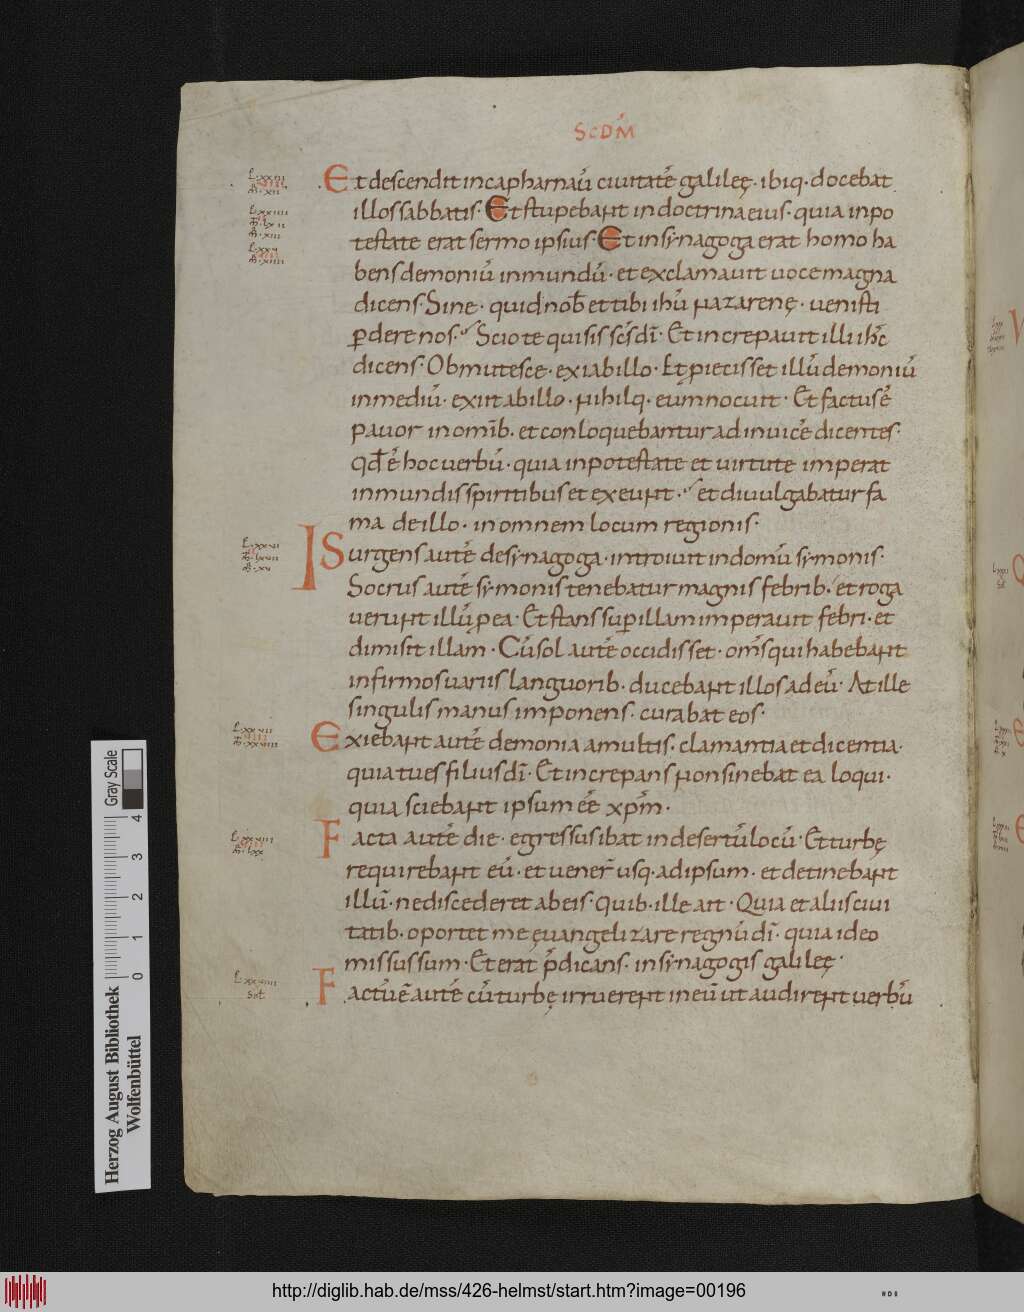 SCDM̄
Et descendit in capharnaū ciuitatē galileę · ibiq· docebat
illos sabbatis · Et stupebant in doctrina eius · quia in po
testate erat sermo ipsius · Et in synagoga erat homo ha
bens demoniū inmundū · et exclamauit uoce magna
dicens · Sine · quid nob̄ et tibi ihū nazarenę · uenisti
ꝑdere nos · Scio te qui sis sc̄s dī · Et increpauit illi ihc̄
dicens · Obmutesce · exi ab illo · Et ꝓiecisset illū demoniū
in mediū · exiit ab illo · nihilq· eum nocuit · Et factus ē
pauor in omīb · et conloquebantur ad inuicē dicentes ·
Qd̄ ē hoc uerbū · quia in potestate et uirtute imperat
inmundis spiritibus et exeunt · et diuulgabatur fa
ma de illo · in omnem locum regionis ·
Surgens autē de synagoga · introiuit in domū symonis ·
Socrus autē symonis tenebatur magnis febrib · et roga
uerunt illū ꝓ ea · Et stans suꝑ illam imperauit febri · et
dimisit illam · Cū sol autē occidisset · om̄s qui habebant
infirmos uariis languorib · ducebant illos ad eū · At ille
singulis manus imponens · curabat eos ·
Exiebant autē demonia a multis · clamantia et dicentia ·
quia tu es filius dī · Et increpans non sinebat ea loqui ·
quia sciebant ipsum eē xpm̄ ·
Facta autē die · egressus ibat in desertū locū · Et turbę
requirebant eū · et uener̄ usq· ad ipsum · et detinebant
illū · ne discederet ab eis · Quib · ille ait · Quia et aliis ciui
tatib · oportet me ęuangelizare regnū dī · quia ideo
missus sum · Et erat p̄dicans · in synagogis galileę ·
Factū ē autē cū turbę irruerent in eū ut audirent uerbū
Gray Scale
0 1 2 3 4
Herzog August Bibliothek
Wolfenbüttel
http://diglib.hab.de/mss/426-helmst/start.htm?image=00196